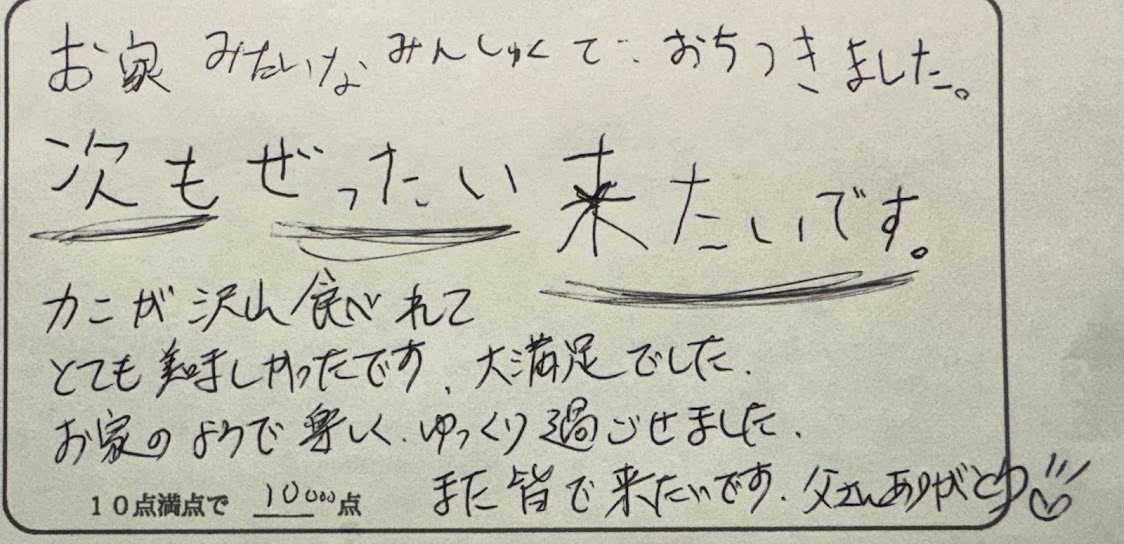 お家みたいなみんしゅくで、おちつきました。
次もぜったい来たいです。
カニが沢山食べれて
とても美味しかったです、大満足でした.
お家のようで楽しく、ゆっくり過ごせました.
また皆で来たいです. 父さんありがとう♡
10点満点で 10000点